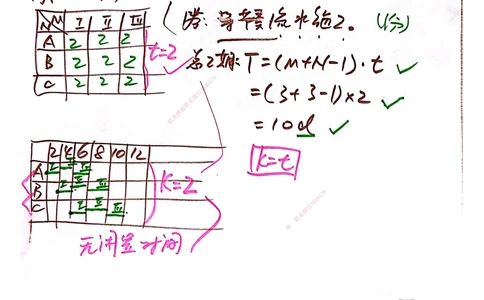 N\M I II III
A 2 2 2
B 2 2 2
C 2 2 2
t=2
答:等节奏流水施工。(1分)
总工期:T=(M+N-1)·t
=(3+3-1)×2
=10d
K=t
2 4 6 8 10 12
A I II III
B I II III
C I II III
K=2
无闲置时间